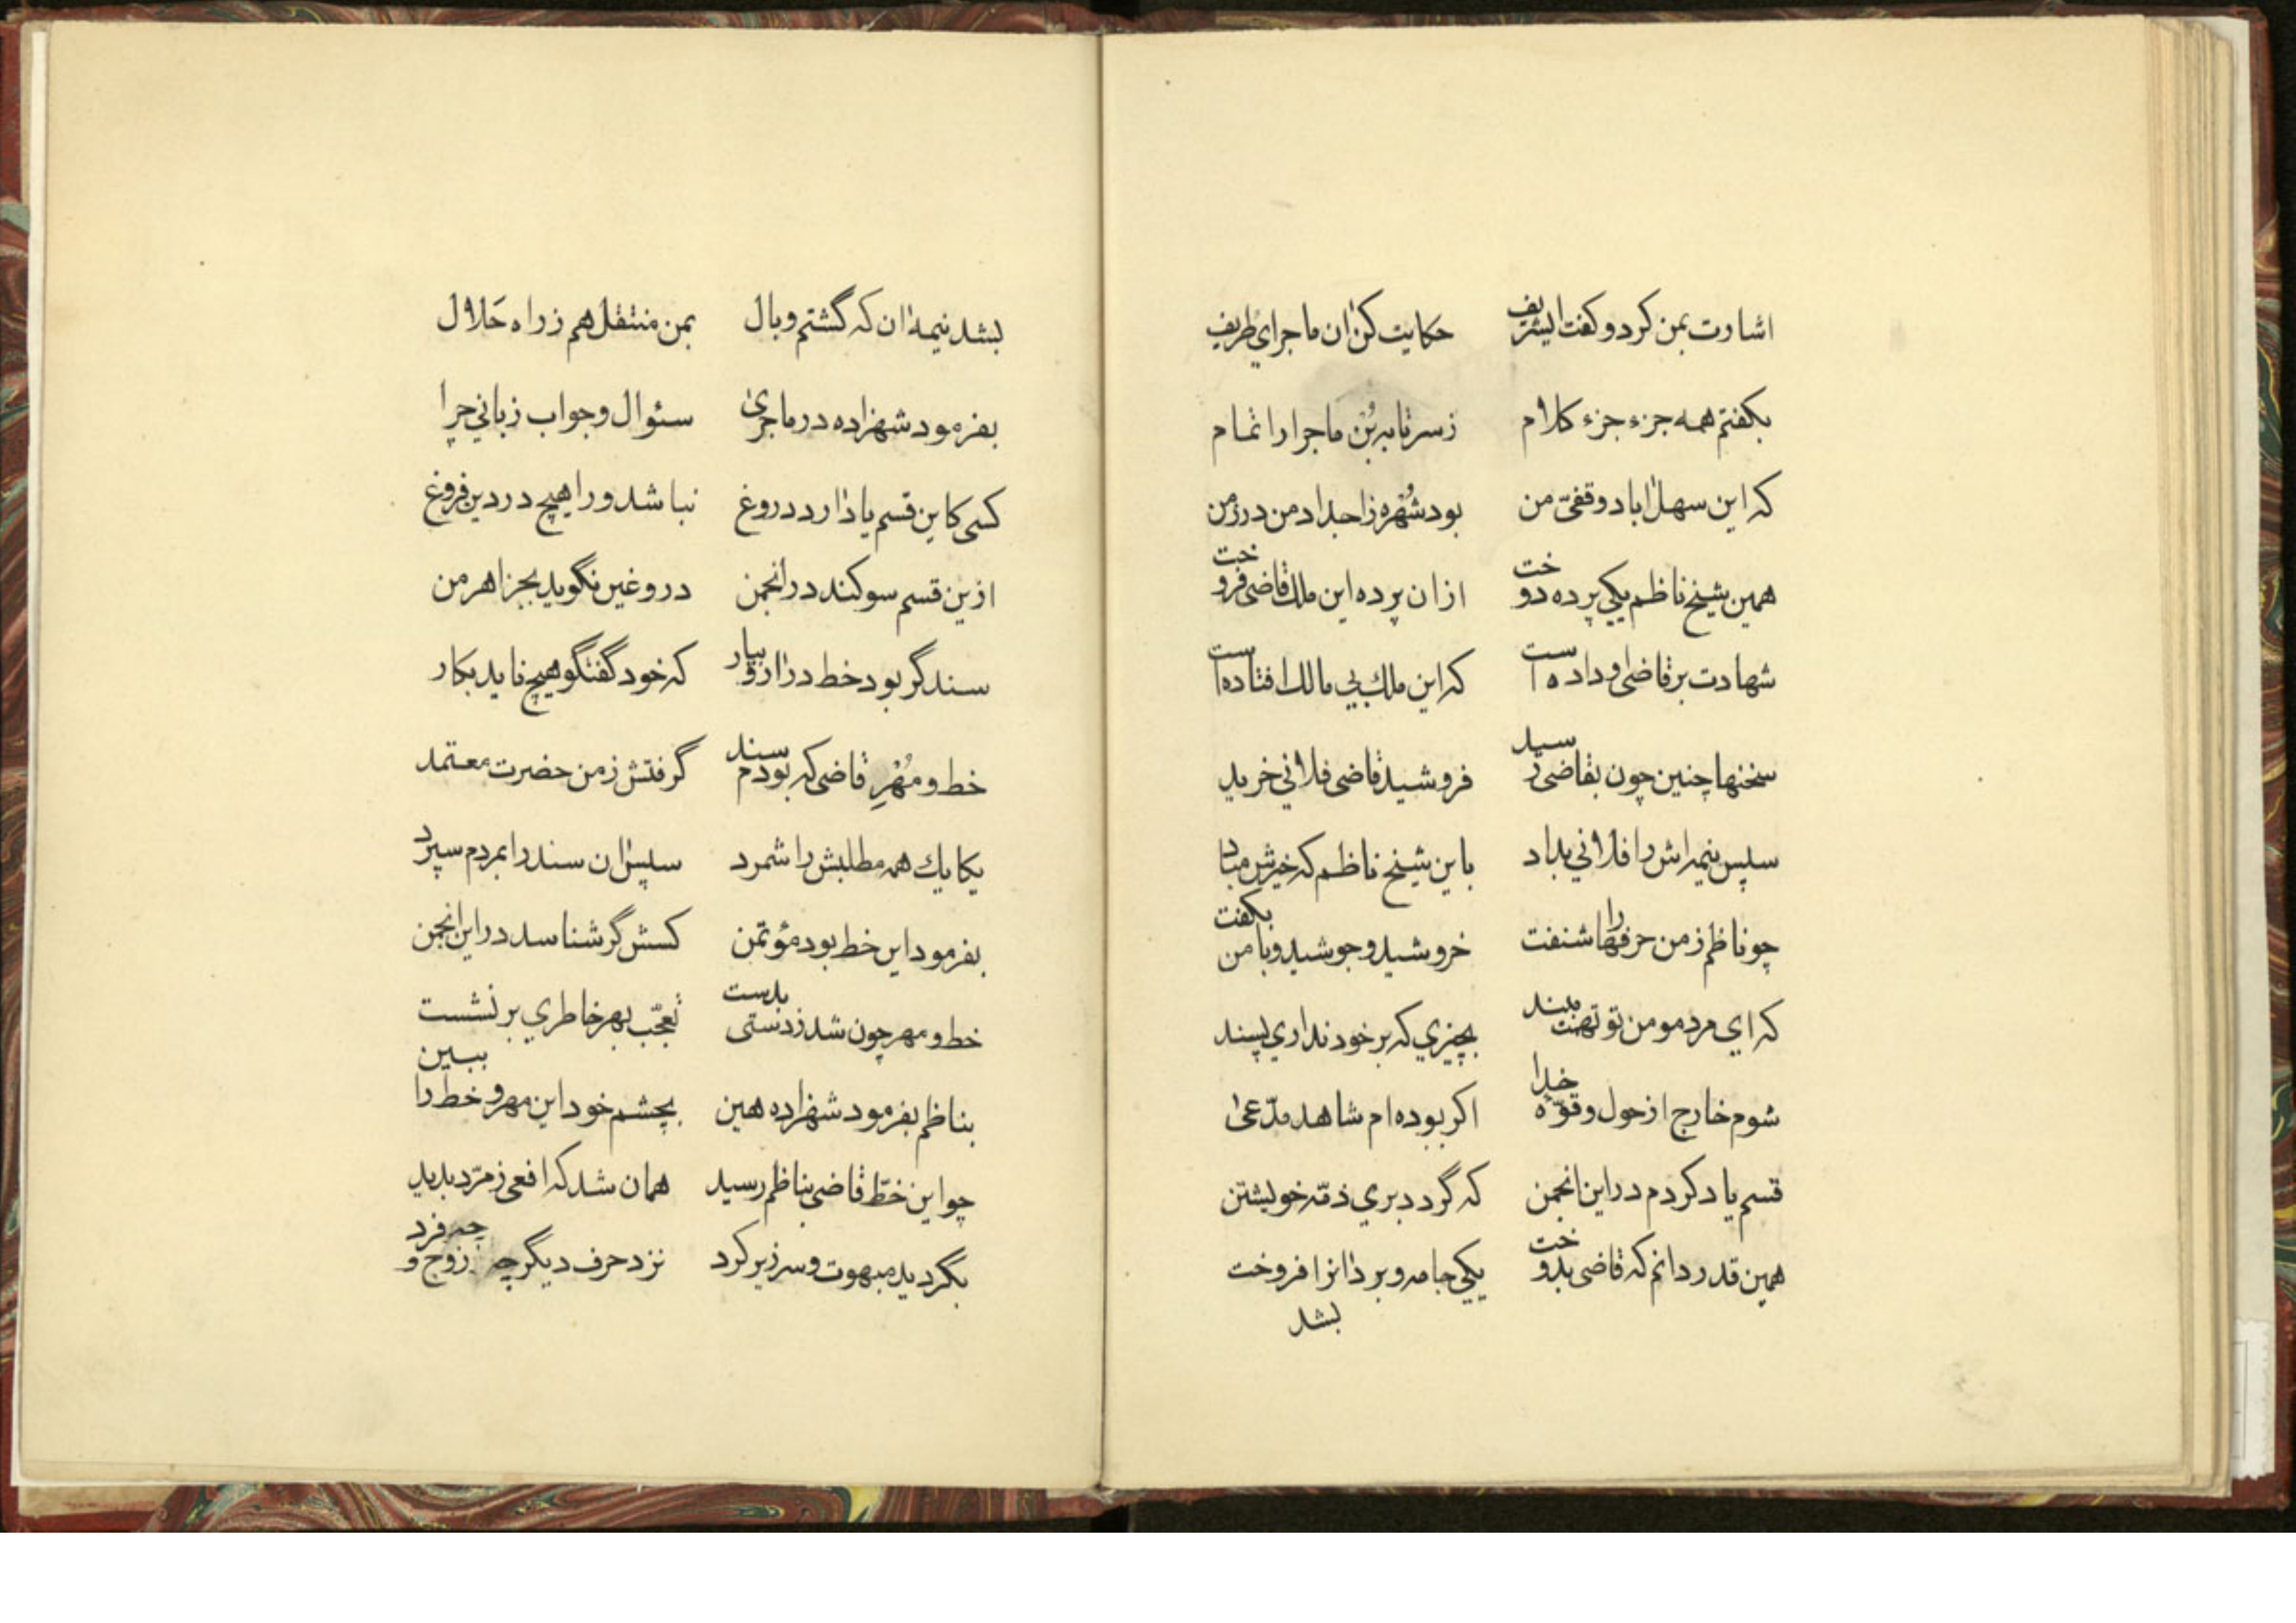 اشارت بمن کرد و کفت ایشریف حکایت کن ان ماجرای ظریف
بکفتم همه جزء جزء کلام زسر تا به بُن ماجرا را تمام
که این سهل اباد وقفیّ من بود شُهره زاجداد من در زمن
همین شیخ ناظم یکی پرده دوخت ازان پرده این ملك قاضی فروخت
شهادت بر قاضی او داده است که این ملك بی مالك افتاده است
سخنها چنین چون بقاضی رسید فروشید قاضی فلانی خرید
سپس نیمه اش را فلانی بداد باین شیخ ناظم که خیرش مباد
چو ناظم زمن حرفها را شنفت خروشید و جوشید و با من بکفت
که ای مرد مومن تو تهمت مبند بچیزی که بر خود نداری پسند
شوم خارج از حول و قوّه خدا اکر بوده ام شاهد مدّعیٰ
قسم یاد کردم در این انجمن که گردد بری ذمّه خویشتن
همین قدر دانم که قاضی بدوخت یکی جامه و بر دانرا فروخت
بشد
بشد نیمه ان که گشتم وبال بمن منتقل هم زراه حَلال
بفرمود شهزاده در ماجریٰ سئوال و جواب زبانی چرا
کسی کاین قسم یاد دارد دروغ نباشد ورا هیچ در دین فروغ
ازین قسم سوکند در انجمن دروغین نگوید بجز اهرمن
سند گر بود خط در ار و بیار که خود گفتگو هیچ ناید بکار
خط و مُهرِ قاضی که بودم سند گرفتش زمن حضرت معتمد
یکایك همه مطلبش را شمرد سپس ان سند را بمردم سپرد
بفرمود این خط بود مؤتمن کسش گر شناسد در این انجمن
خط و مهر چون شد زدستی بدست تعجّب بهر خاطری بر نشست
بناظم بفرمود شهزاده همین بچشم خود این مهر و خط را ببین
چو این خطّ قاضی بناظم رسید همان شد که افعی زمرّد بدید
بگردید مبهوت و سر زیر کرد نزد حرف دیگر چه زوج و چه فرد